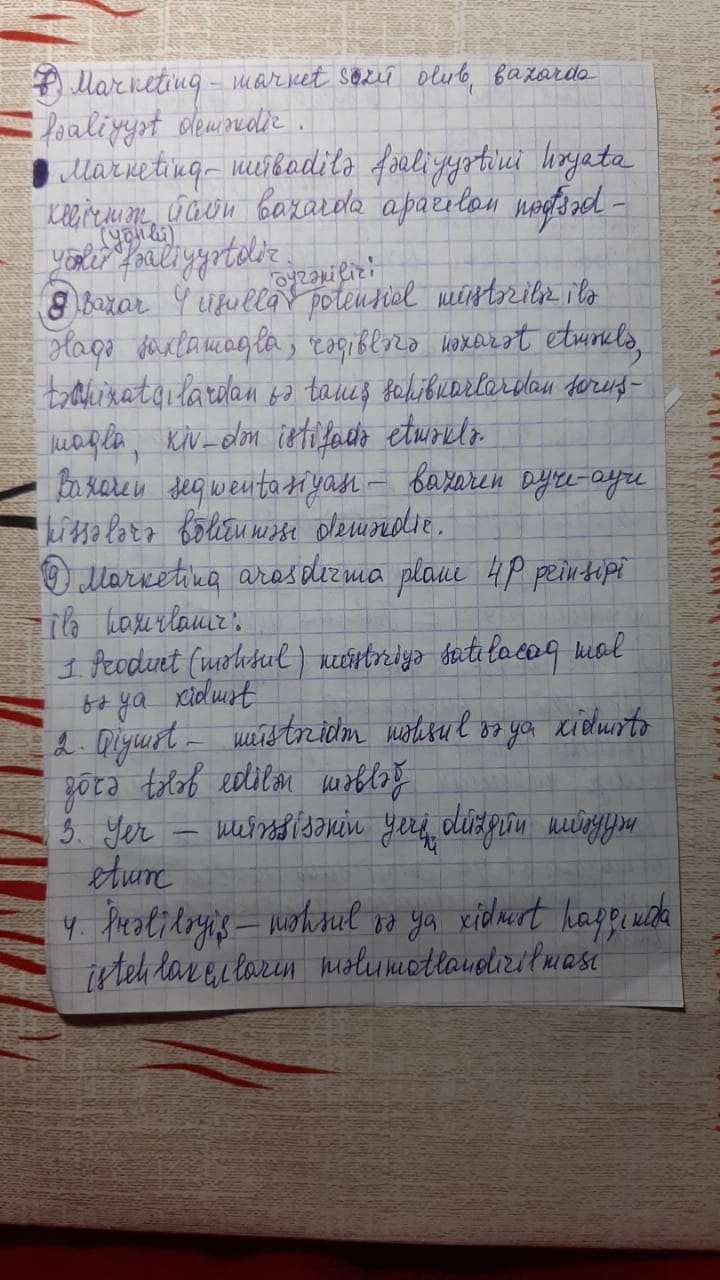 7 Marketinq - market sözü olub, bazarda
fəaliyyət deməkdir.
Marketinq - mübadilə fəaliyyətini həyata
keçirmək üçün bazarda aparılan məqsəd-
(yönlü)
yönlü fəaliyyətdir.
öyrənilir:
8 Bazar 4 üsulla potensial müştərilər ilə
əlaqə saxlamaqla, rəqiblərə nəzarət etməklə,
təchizatçılardan və tanış sahibkarlardan soruş-
maqla, KİV-dən istifadə etməklə.
Bazarın seqmentasiyası - bazarın ayrı-ayrı
hissələrə bölünməsi deməkdir.
9 Marketinq araşdırma planı 4P prinsipi
ilə hazırlanır:
1. Product (məhsul) müştəriyə satılacaq mal
və ya xidmət
2. Qiymət - müştəridən məhsul və ya xidmətə
görə tələb edilən məbləğ
3. Yer - müəssisənin yerini düzgün müəyyən
etmək
4. İrəliləyiş - məhsul və ya xidmət haqqında
istehlakçıların məlumatlandırılması